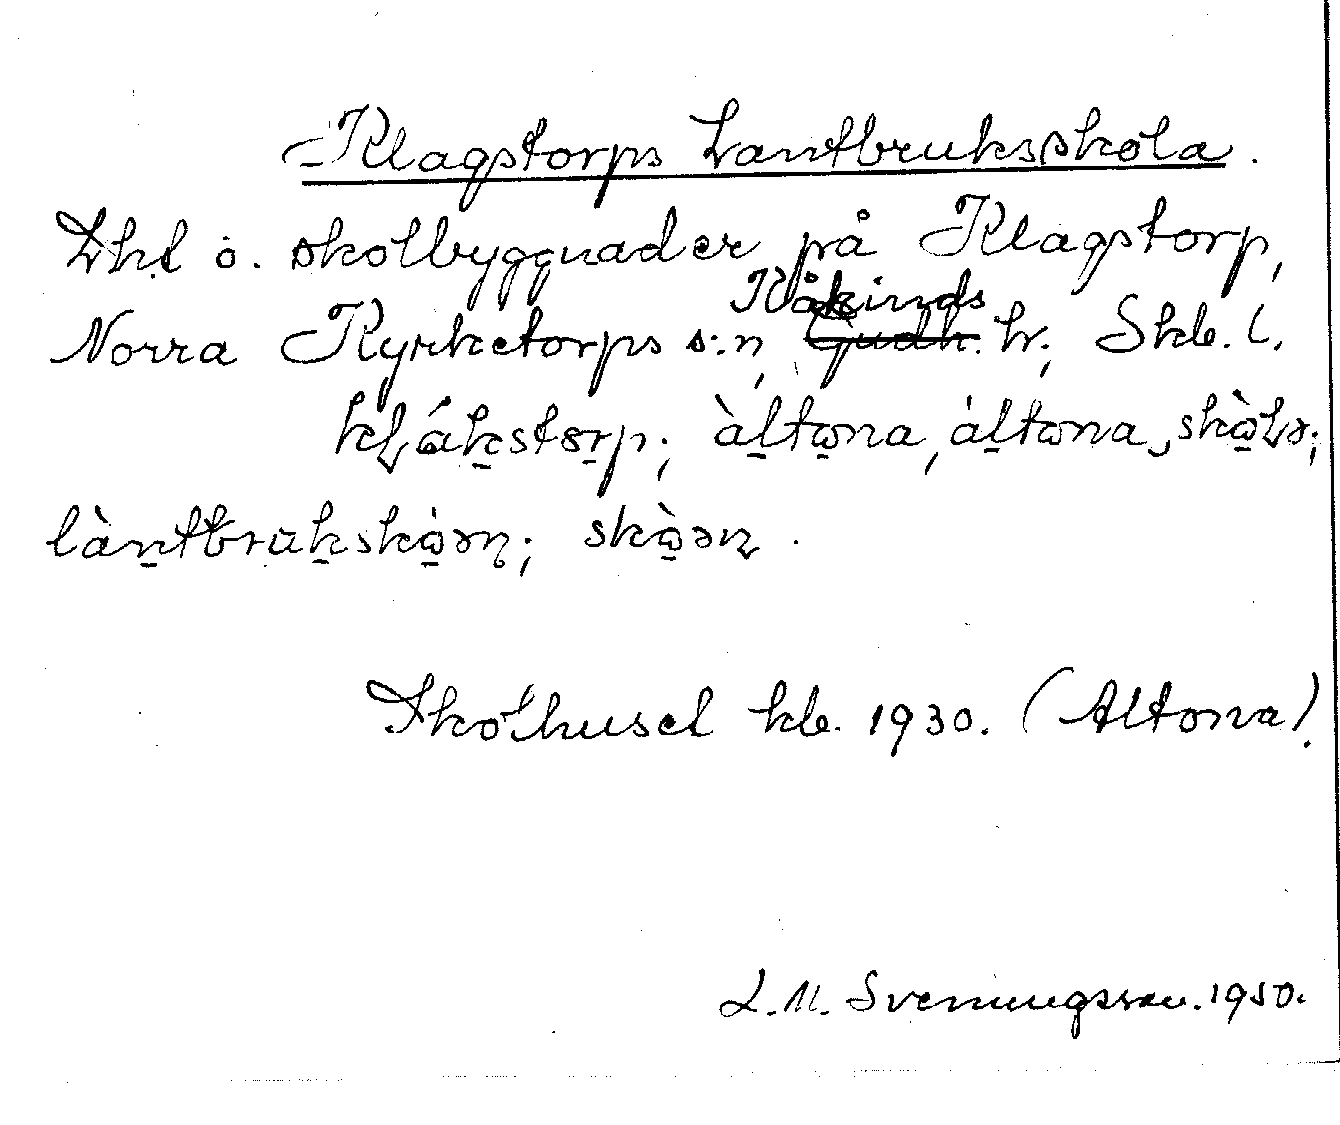 Klagstorps Lantbruksskola.
Lht o. skolbyggnader på Klagstorp,
Kåkinds
Norra Kyrketorps s:n, Gudh. hr., Skb. l.
klákstorp; àltona, áltona, skòlə;
làntbrukskòən; skòən.
Skolhuset kb. 1930. (Altona).
L. M. Svenungsson. 1950.